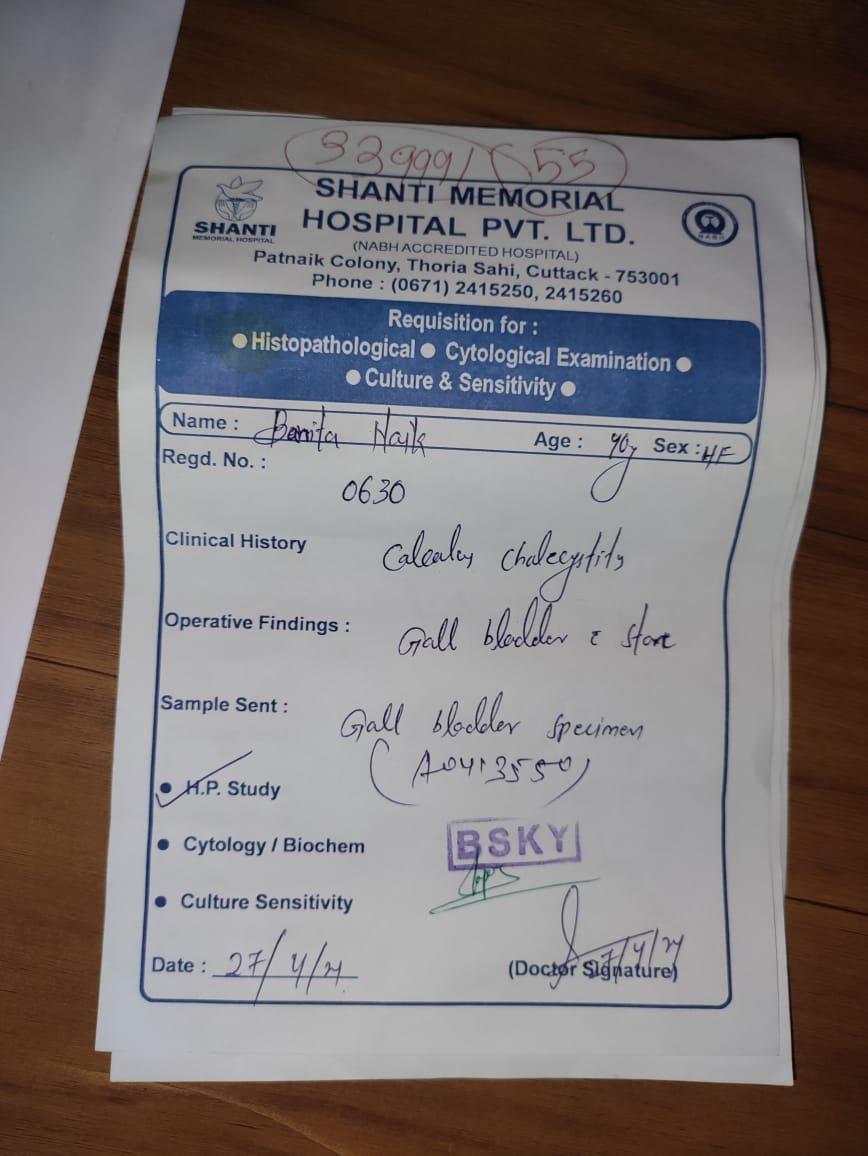 32999/ 655
SHANTI
MEMORIAL HOSPITAL
SHANTI MEMORIAL
HOSPITAL PVT. LTD.
NABH
(NABH ACCREDITED HOSPITAL)
Patnaik Colony, Thoria Sahi, Cuttack - 753001
Phone : (0671) 2415250, 2415260
Requisition for :
● Histopathological ● Cytological Examination ●
● Culture & Sensitivity ●
Name : Banita Naik Age : 40y Sex : F
Regd. No. :
0630
Clinical History
Operative Findings : Gall bladder c̄ stone
Sample Sent : Gall bladder specimen
(A0413550)
● H.P. Study
● Cytology / Biochem
BSKY
● Culture Sensitivity
Date : 27/4/
(Doctor Signature)